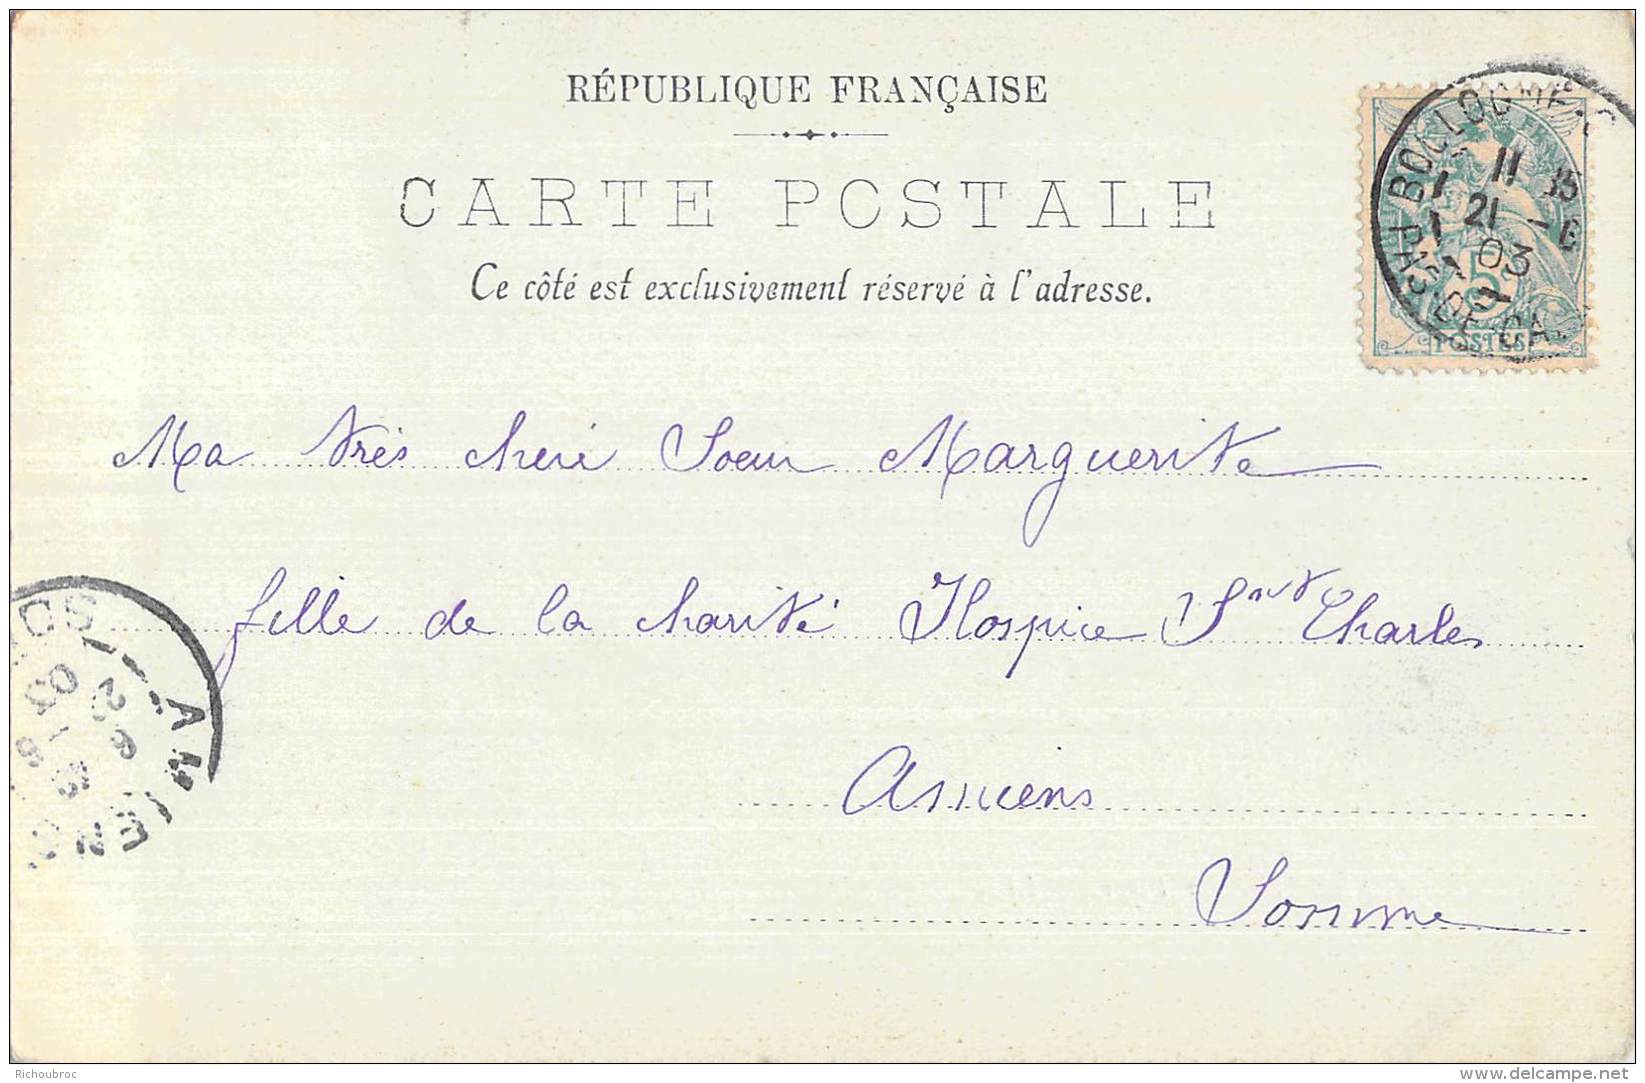 RÉPUBLIQUE FRANÇAISE
CARTE POSTALE
Ce côté est exclusivement réservé à l'adresse.
BOULOGNE-S
11 35
21 -6
03
PAS-DE-CA
5
POSTES
Ma très cheri Soeur Marguerite
fille de la charité Hospice Snt Charles
Amiens
Somme
AMIENS
03
Richoubroc
www.delcampe.net